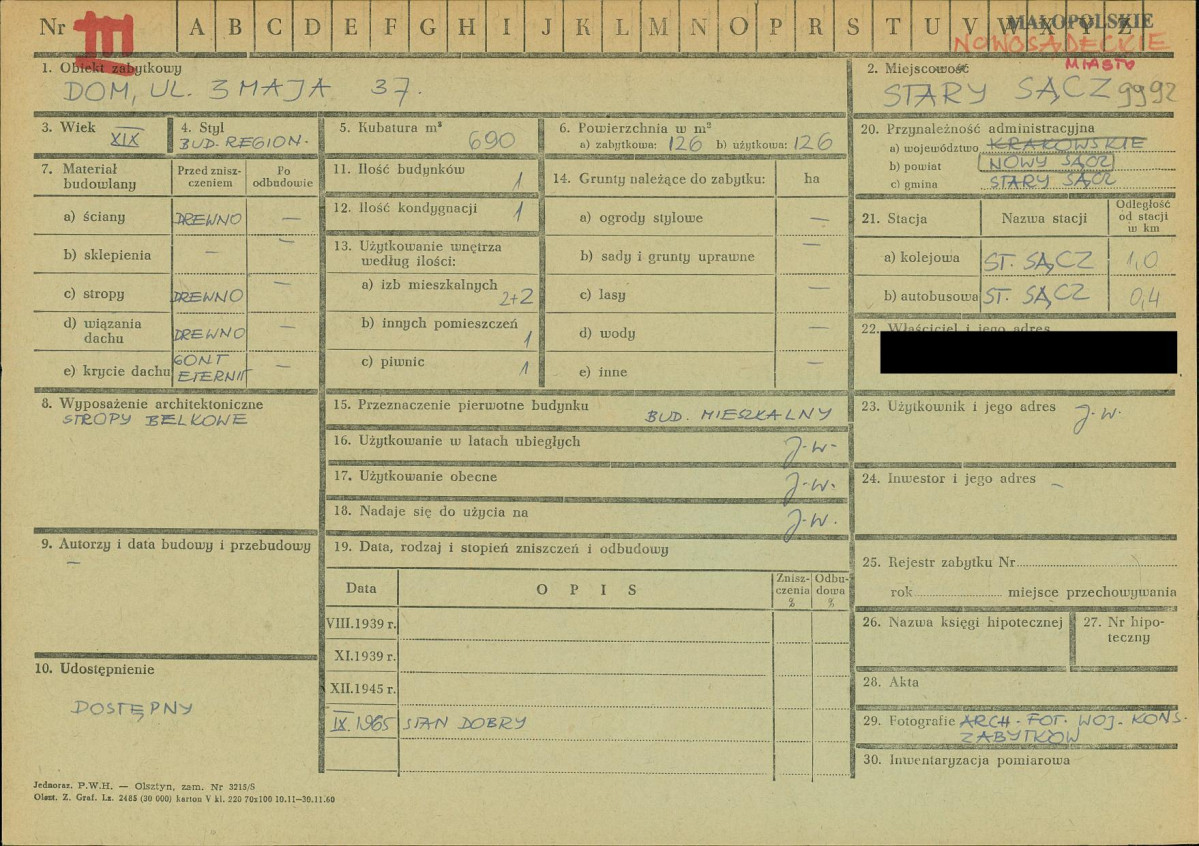 Nr III A B C D E F G H I J K L M N O P R S T U V W X Y Z
MAŁOPOLSKIE
NOWOSĄDECKIE
MIASTO
1. Obiekt zabytkowy
DOM, UL. 3 MAJA 37.
2. Miejscowość
STARY SĄCZ 9992
3. Wiek XIX
4. Styl
BUD. REGION.
5. Kubatura m³
690
6. Powierzchnia w m²
a) zabytkowa: 126 b) użytkowa: 126
7. Materiał budowlany
Przed znisz-
czeniem
Po
odbudowie
a) ściany DREWNO —
b) sklepienia — —
c) stropy DREWNO —
d) wiązania
dachu DREWNO —
e) krycie dachu GONT
ETERNIT —
8. Wyposażenie architektoniczne
STROPY BELKOWE
9. Autorzy i data budowy i przebudowy
—
10. Udostępnienie
DOSTĘPNY
11. Ilość budynków 1
12. Ilość kondygnacji 1
13. Użytkowanie wnętrza
według ilości:
a) izb mieszkalnych
2+2
b) innych pomieszczeń
1
c) piwnic 1
14. Grunty należące do zabytku: ha
a) ogrody stylowe —
b) sady i grunty uprawne —
c) lasy —
d) wody —
e) inne —
15. Przeznaczenie pierwotne budynku BUD. MIESZKALNY
16. Użytkowanie w latach ubiegłych J.W.
17. Użytkowanie obecne J.W.
18. Nadaje się do użycia na J.W.
19. Data, rodzaj i stopień zniszczeń i odbudowy
Data O P I S Znisz-
czenia
% Odbu-
dowa
%
VIII.1939 r.
XI.1939 r.
XII.1945 r.
IX.1965 STAN DOBRY
20. Przynależność administracyjna
a) województwo KRAKOWSKIE
b) powiat NOWY SĄCZ
c) gmina STARY SĄCZ
21. Stacja Nazwa stacji Odległość
od stacji
w km
a) kolejowa ST. SĄCZ 1,0
b) autobusowa ST. SĄCZ 0,4
22. Właściciel i jego adres
23. Użytkownik i jego adres J.W.
24. Inwestor i jego adres —
25. Rejestr zabytku Nr
rok miejsce przechowywania
26. Nazwa księgi hipotecznej
27. Nr hipo-
teczny
28. Akta
29. Fotografie ARCH. FOT. WOJ. KONS.
ZABYTKÓW
30. Inwentaryzacja pomiarowa
Jednoraz. P.W.H. — Olsztyn, zam. Nr 3215/S
Olszt. Z. Graf. Lz. 2485 (30 000) karton V kl. 220 70x100 10.11—30.11.60